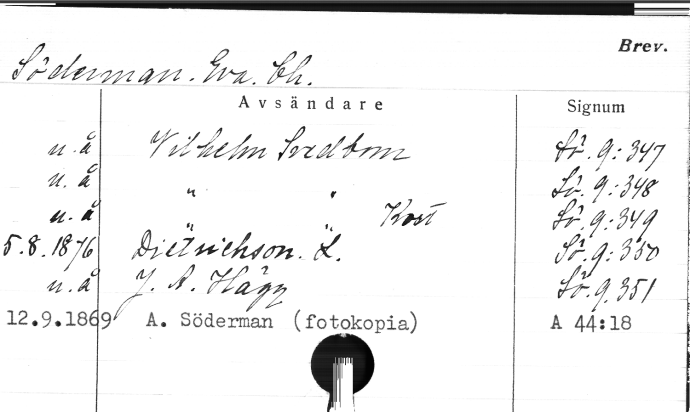 Brev.
Söderman. Eva. Ch.
Avsändare Signum
u.å Vilhelm Svedbom Sö. 9:347
u.å " " Sö. 9:348
u.å " " Kort Sö. 9:349
5.8.1876 Dietrichson. L. Sö. 9:350
u.å J. A. Hägg Sö. 9.351
12.9.1869 A. Söderman (fotokopia) A 44:18